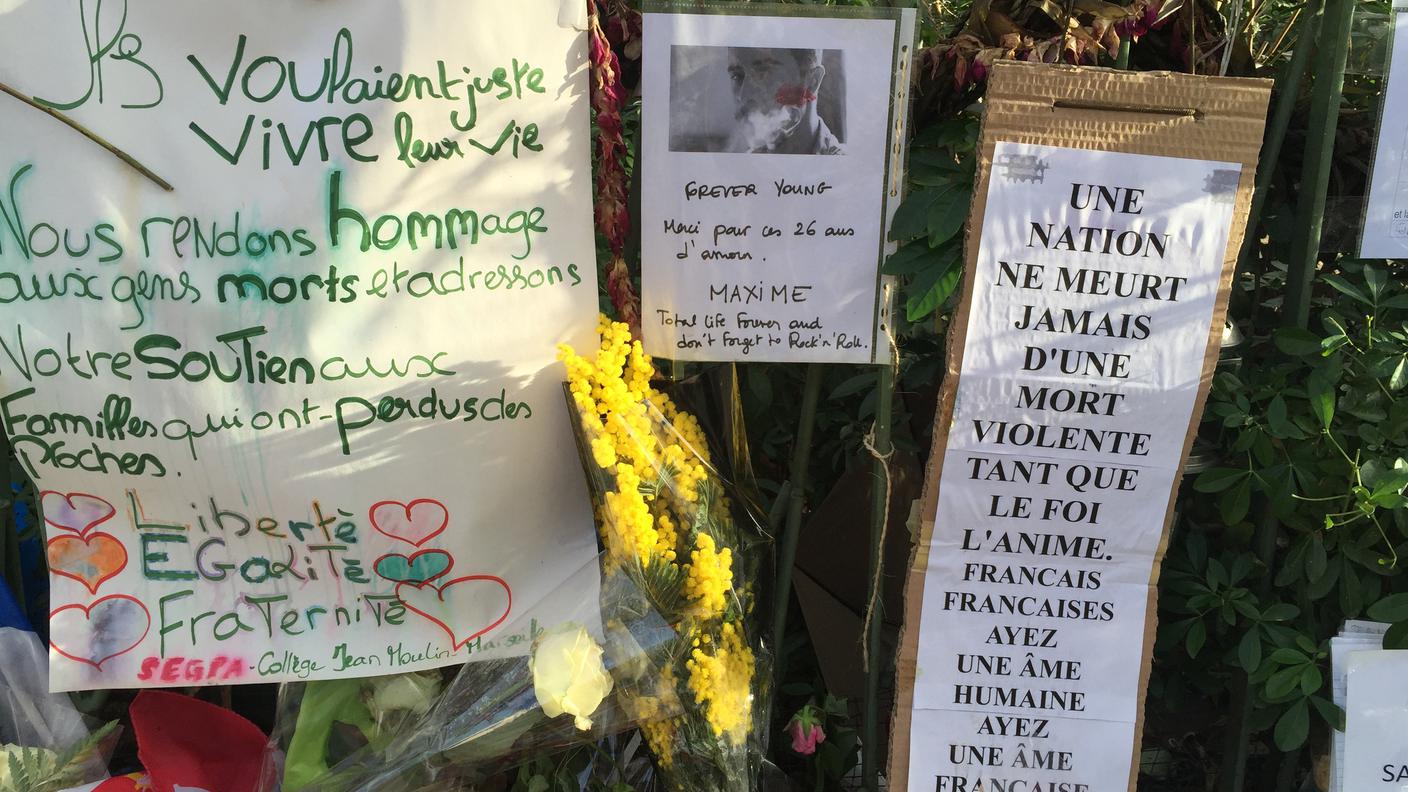 Ils voulaient juste
vivre leur vie
Nous rendons hommage
aux gens morts et adressons
Notre soutien aux
Familles qui ont perdus des
Proches.
Liberté
EGaliTé
FraTerniTé
SEGPA - Collège Jean Moulin - Marseille
FOREVER YOUNG
Merci pour ces 26 ans
d'amour.
MAXIME
Total life Forever and
don't Forget to Rock'n'Role.
UNE
NATION
NE MEURT
JAMAIS
D'UNE
MORT
VIOLENTE
TANT QUE
LE FOI
L'ANIME.
FRANCAIS
FRANCAISES
AYEZ
UNE ÂME
HUMAINE
AYEZ
UNE ÂME
FRANCAISE
et la
SA